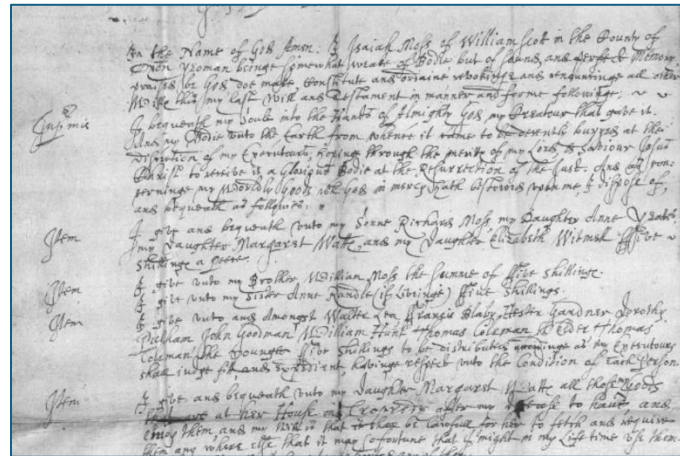 In the Name of God Amen. I Isaiah Moss of Williamscott in the County of
Oxon Yeoman beinge somewhat weake of Bodie but of sound and perfect Memory
praised be God doe make, Constitute and ordaine revokinge and renouncinge all other
Wills this my last Will and Testament in manner and forme followinge.
Inprimis
I bequeath my Soule into the Hands of Almighty God my Creatour that gave it.
And my Bodie unto the Earth from whence it came to be decently buryed at the
Discretion of my Executours, hoping through the merits of my Lord & Saviour Jesus
Christ to receive it a Glorious Bodie at the Resurrection of the Just. And as con-
cerninge my Worldly Goods God in mercy hath bestowed upon me, I dispose of,
and bequeath as followes:
Item
I give and bequeath unto my Sonne Richard Moss, my Daughter Anne
my Daughter Margaret and my Daughter Elizabeth ffive
shillings a peece.
Item
I give unto my Brother William Moss the summe of ffive shillings.
Item
I give unto my Sister Anne Randle (if livinge) ffive shillings.
Item
I give unto and amongst Walter Francis Blaby, Hester Gardner Dorothy
John Goodman William Hunt Thomas Coleman the Elder Thomas
Coleman the Younger ffive shillings to be distributed as my Executours
shall judge fit and expedient, havinge respect unto the Condition of Each person.
Item
I give and bequeath unto my Daughter Margaret all those Goods
that are at her House in Cropredy after my to have, and
enjoy them, and my Will is that it shall be Lawfull for her to fetch and require
them any where else that it may so fortune that I might in my life time use them.